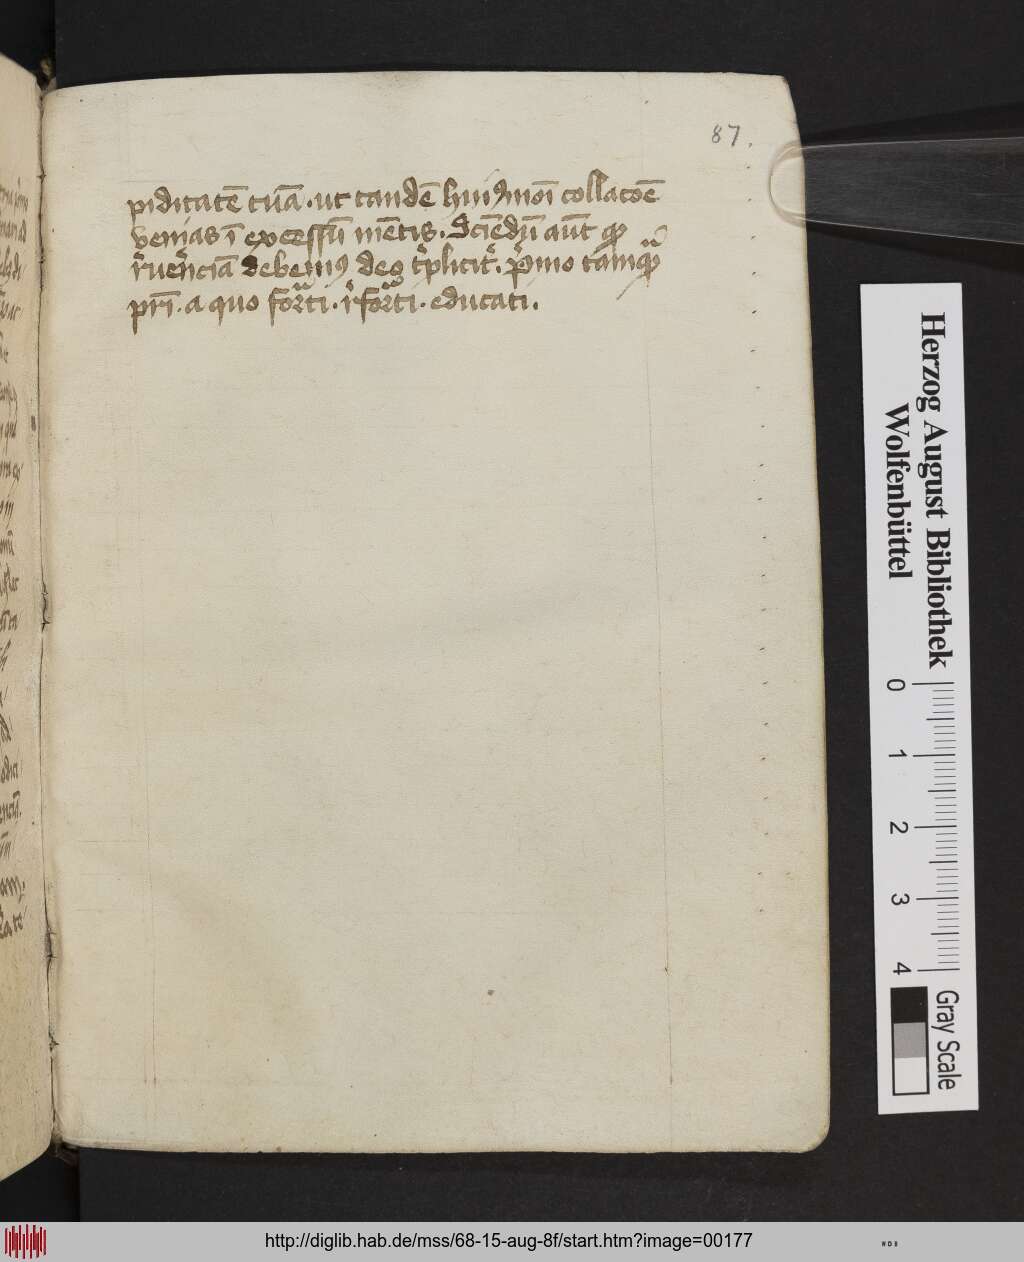 87.
piditatē tuā . ut tandē huiꝯmōi collacōē
venias ī excessū mētis . Sciēdū aūt ꝙ
debemꝰ deo t̾plicit̾ . p̾mo tamqͣ
pr̄i . a quo forͣti . r̾forͣti . educati .
Herzog August Bibliothek
Wolfenbüttel
0 1 2 3 4
Gray Scale
http://diglib.hab.de/mss/68-15-aug-8f/start.htm?image=00177